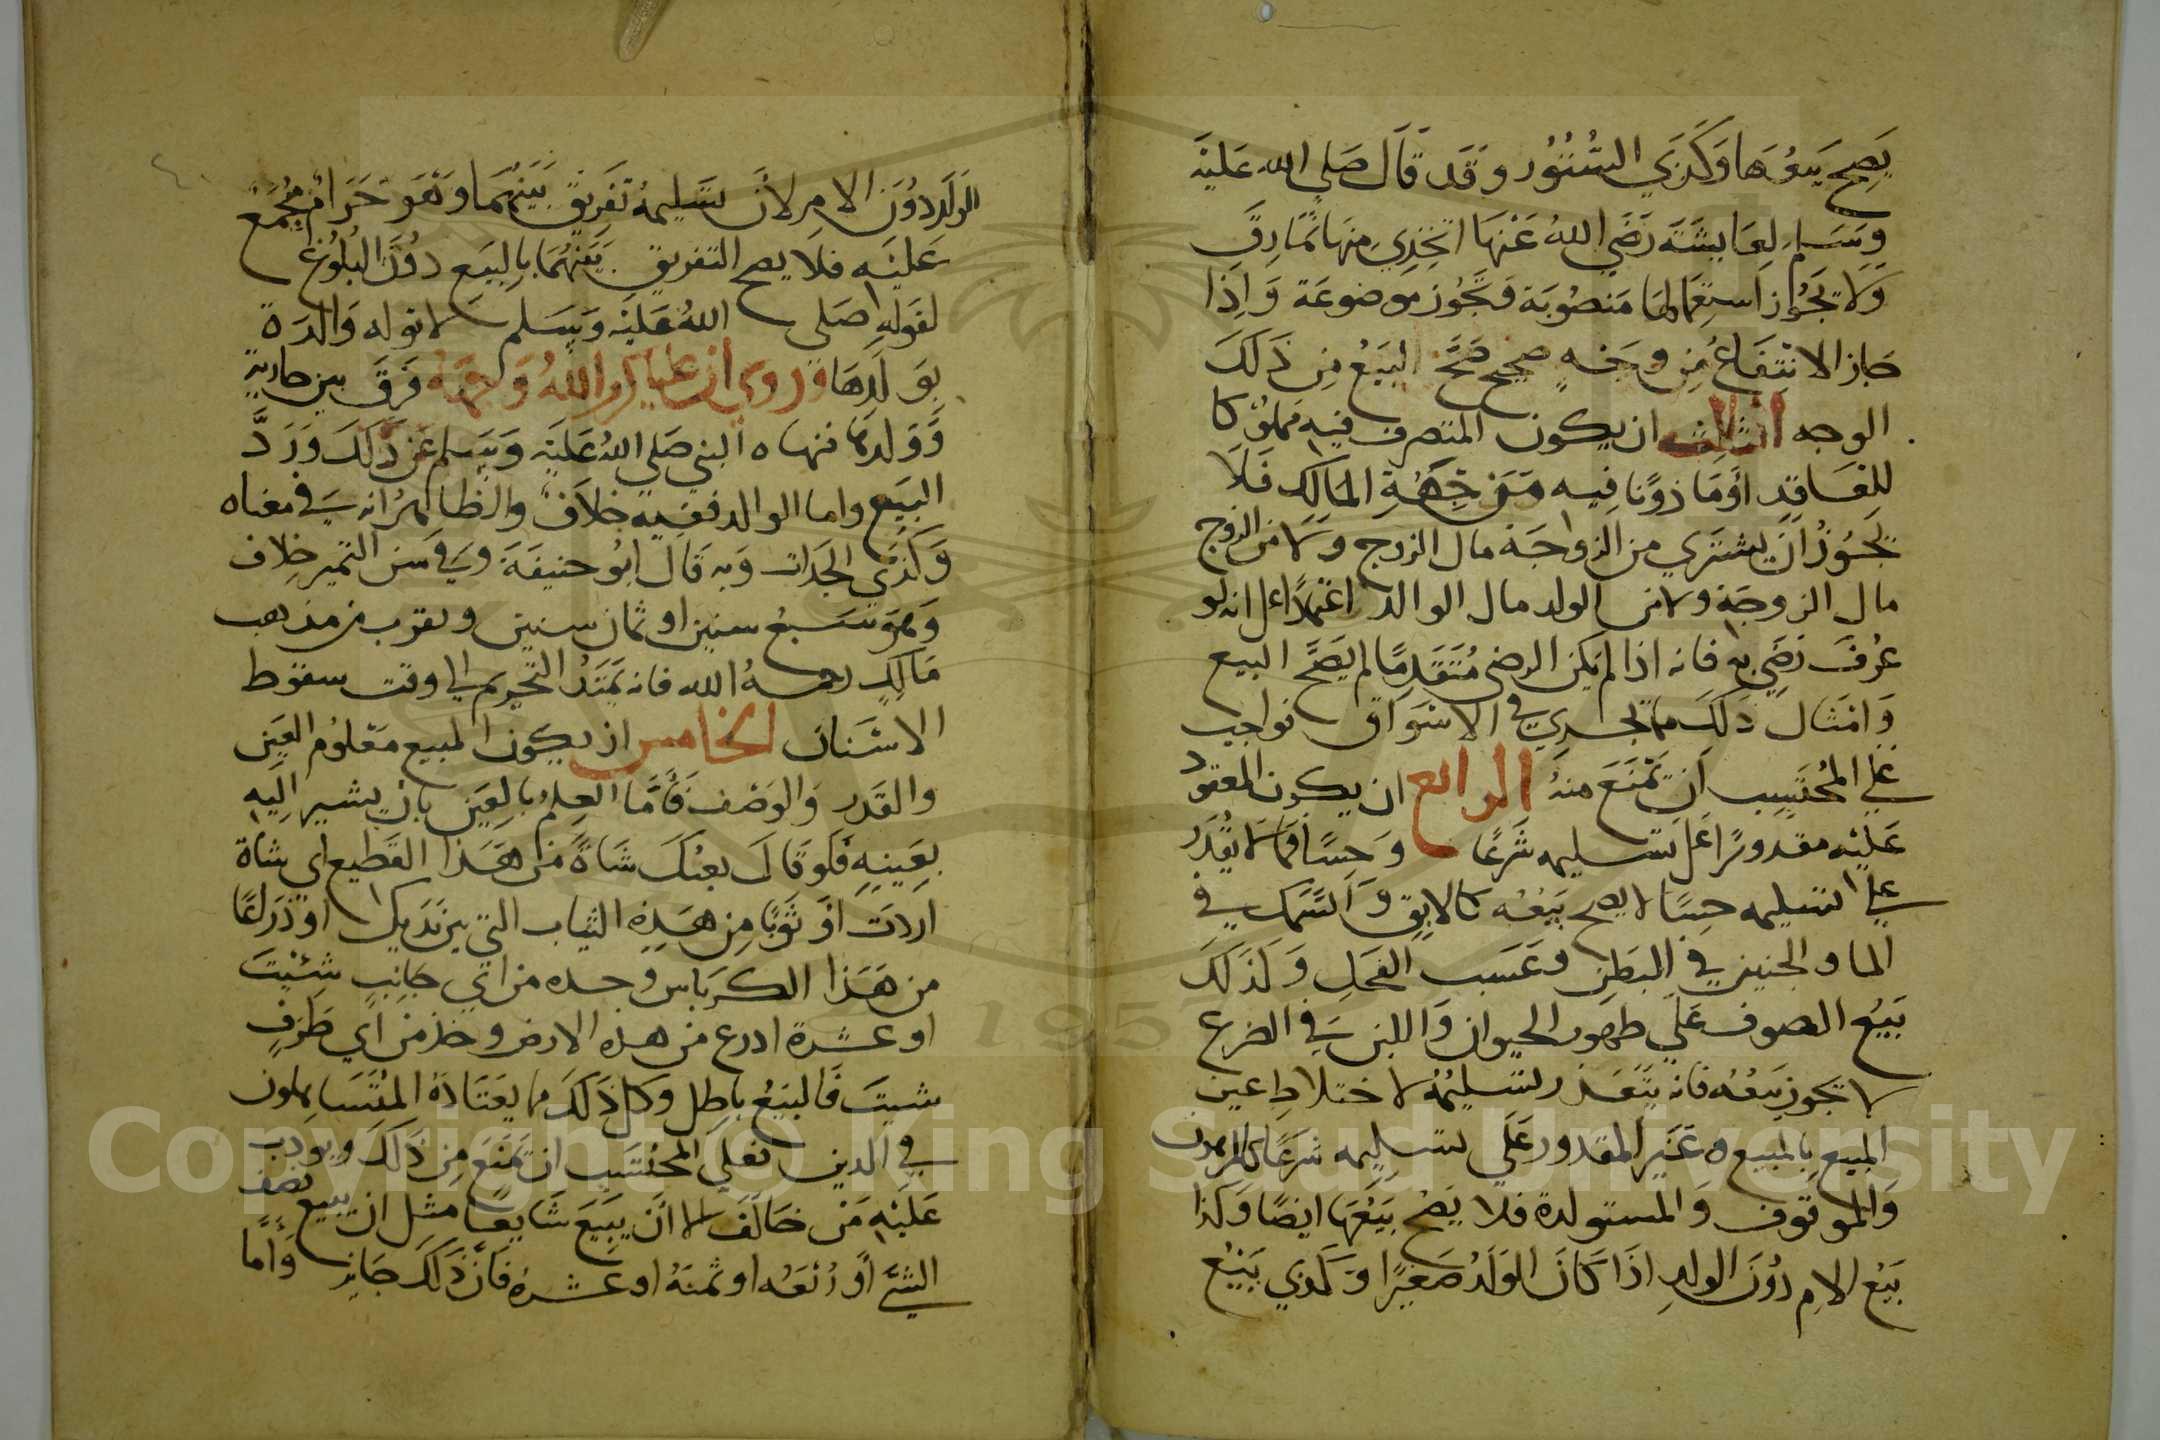 يصح بيعها وكذي الستور وقد قال صلى الله عليه
وسلم لعايشة رضي الله عنها اتخذي منها نمارق
ولا تجواز استعمالها منصوبة وتجوز موضوعة واذا
جاز الانتفاع من وجه صحيح صح البيع من ذلك
الوجه الثالث ان يكون المتصرف فيه مملوكا
للعاقد او ماذونا فيه من جهة المالك فلا
تجوز ان يشتري من الزواجة مال الزوج ولا من الزوج
مال الزوجة ولا من الولد مال الوالد اعتمادا على انه لو
عرف رضي به فانه اذا لم يكن الرضى متقدما لم يصح البيع
وامثال ذلك مما تجري في الاسواق فواجب
على المحتسب ان تمنع منه الرابع ان يكون المعقود
عليه مقدورا على تسليمه شرعا وحسا فما لا يقدر
على تسليمه حسا لا يصح بيعه كالابق والسمك في
الما والجنين في البطن وعسب الفحل وكذلك
بيع الصوف على ظهور الحيوان واللبن في الضرع
لا تجوز بيعه فانه يتعذر تسليمه لاختلاط عين
المبيع بالمبيع ه غير المقدور على تسليمه شرعا كالمرهون
والموقوف والمستولدة فلا يصح بيعها ايضا وكذا
بيع الام دون الولد اذا كان الولد صغيرا وكذي بيع
الولد دون الام لان تسليمه تفريق بينهما وهو حرام مجمع
عليه فلا يصح التفريق بينهما بالبيع دون البلوغ
لقوله صلى الله عليه وسلم لا توله والدة
بولدها وروي ان عليا كرم الله وجهه فرق بين جارية
وولدها فنهاه النبي صلى الله عليه وسلم عن ذلك ورد
البيع واما الوالد ففيه خلاف والظاهر انه في معناه
وكذي الجدات وبه قال ابو حنيفة وفي سن التميز خلاف
وهو سبع سنين او ثمان سنين ويقرب من مذهب
مالك رحمه الله فانه يمتد التحريم الى وقت سقوط
الاسنان الخامس ان يكون المبيع معلوم العين
والقدر والوصف فاما العلم بالعين بان يشير اليه
بعينه فلو قال بعتك شاة من هذا القطيع اي شاة
اردت او ثوبا من هذه الثياب التي بين يديك او ذراعا
من هذا الكرباس وخذه من اي جانب شئت
او عشرة اذرع من هذه الارض وخذ من اي طرف
شيت فالبيع باطل وكل ذلك مما يعتاده المتساهلون
في الدين فعلى المحتسب ان تمنع من ذلك ويودب
عليه من خالف الا أن يبيع شايعا مثل ان يبيع نصف
الشي أو ربعه او ثمنه او عشره فان ذلك جايز وأما
Copyright © King Saud University
195